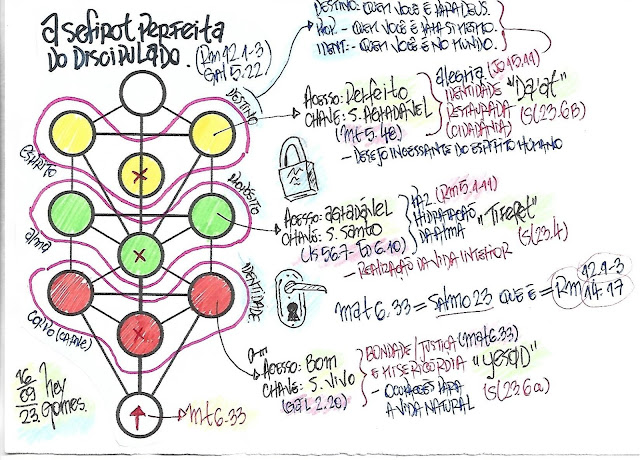 DESTINO: QUEM VOCÊ É PARA DEUS.
PROP. - QUEM VOCÊ É PARA SI MESMO.
IDENT: - QUEM VOCÊ É NO MUNDO.
A SEFIROT PERFEITA
DO DISCIPULADO.
(Rm 12.1-3
Gál 5.22.
DESTINO
ACESSO: PERFEITO
CHAVE: S. AGRADÁVEL
(Mt 5.48)
alegria (Jo 15.11)
IDENTIDADE
RESTAURADA
(CIDADANIA)
"Da'at"
(Sl 23.6B)
- DESEJO INCESSANTE DO ESPÍRITO HUMANO
ESPÍRITO
PROPÓSITO
ACESSO: AGRADÁVEL
CHAVE: S. SANTO
(Is 56.7 - Ed 6.10)
PAZ (Rm 5.1-11)
HIDRATAÇÃO
DA ALMA
"Tiferet"
(Sl 23.4)
- REALIZAÇÃO DA VIDA INTERIOR
ALMA
IDENTIDADE
mat 6.33 = SALMO 23 QUE É = Rm 12.1-3
14.17
CORPO (CARNE)
ACESSO: BOM
CHAVE: S. VIVO
(Gál 2.20)
BONDADE/JUSTIÇA (mat 6.33)
E MISERICÓRDIA "YESOD"
PARA
A VIDA NATURAL
(Sl 23.6a)
16
09
23.
hey
gomes.
mt 6.33